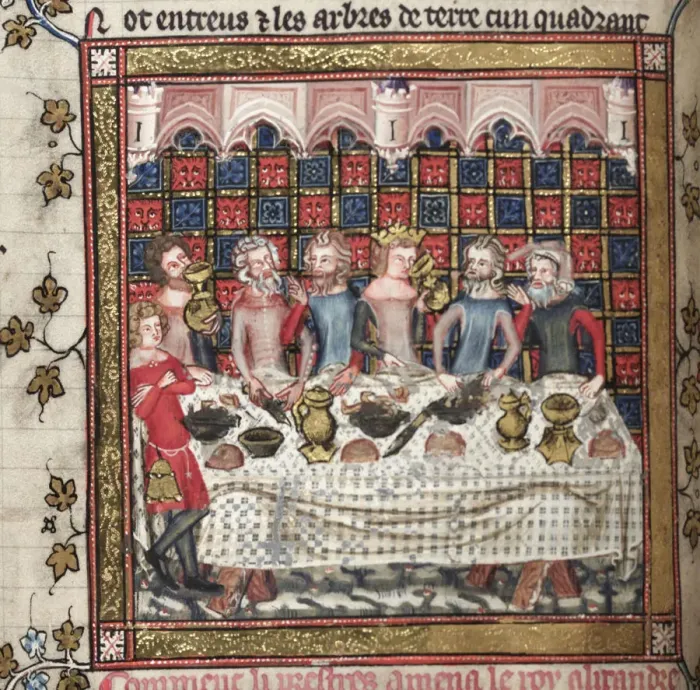 ot entreus ⁊ les arbres de terre cun quadrant
Comment li vrestres amena le roy alixandre